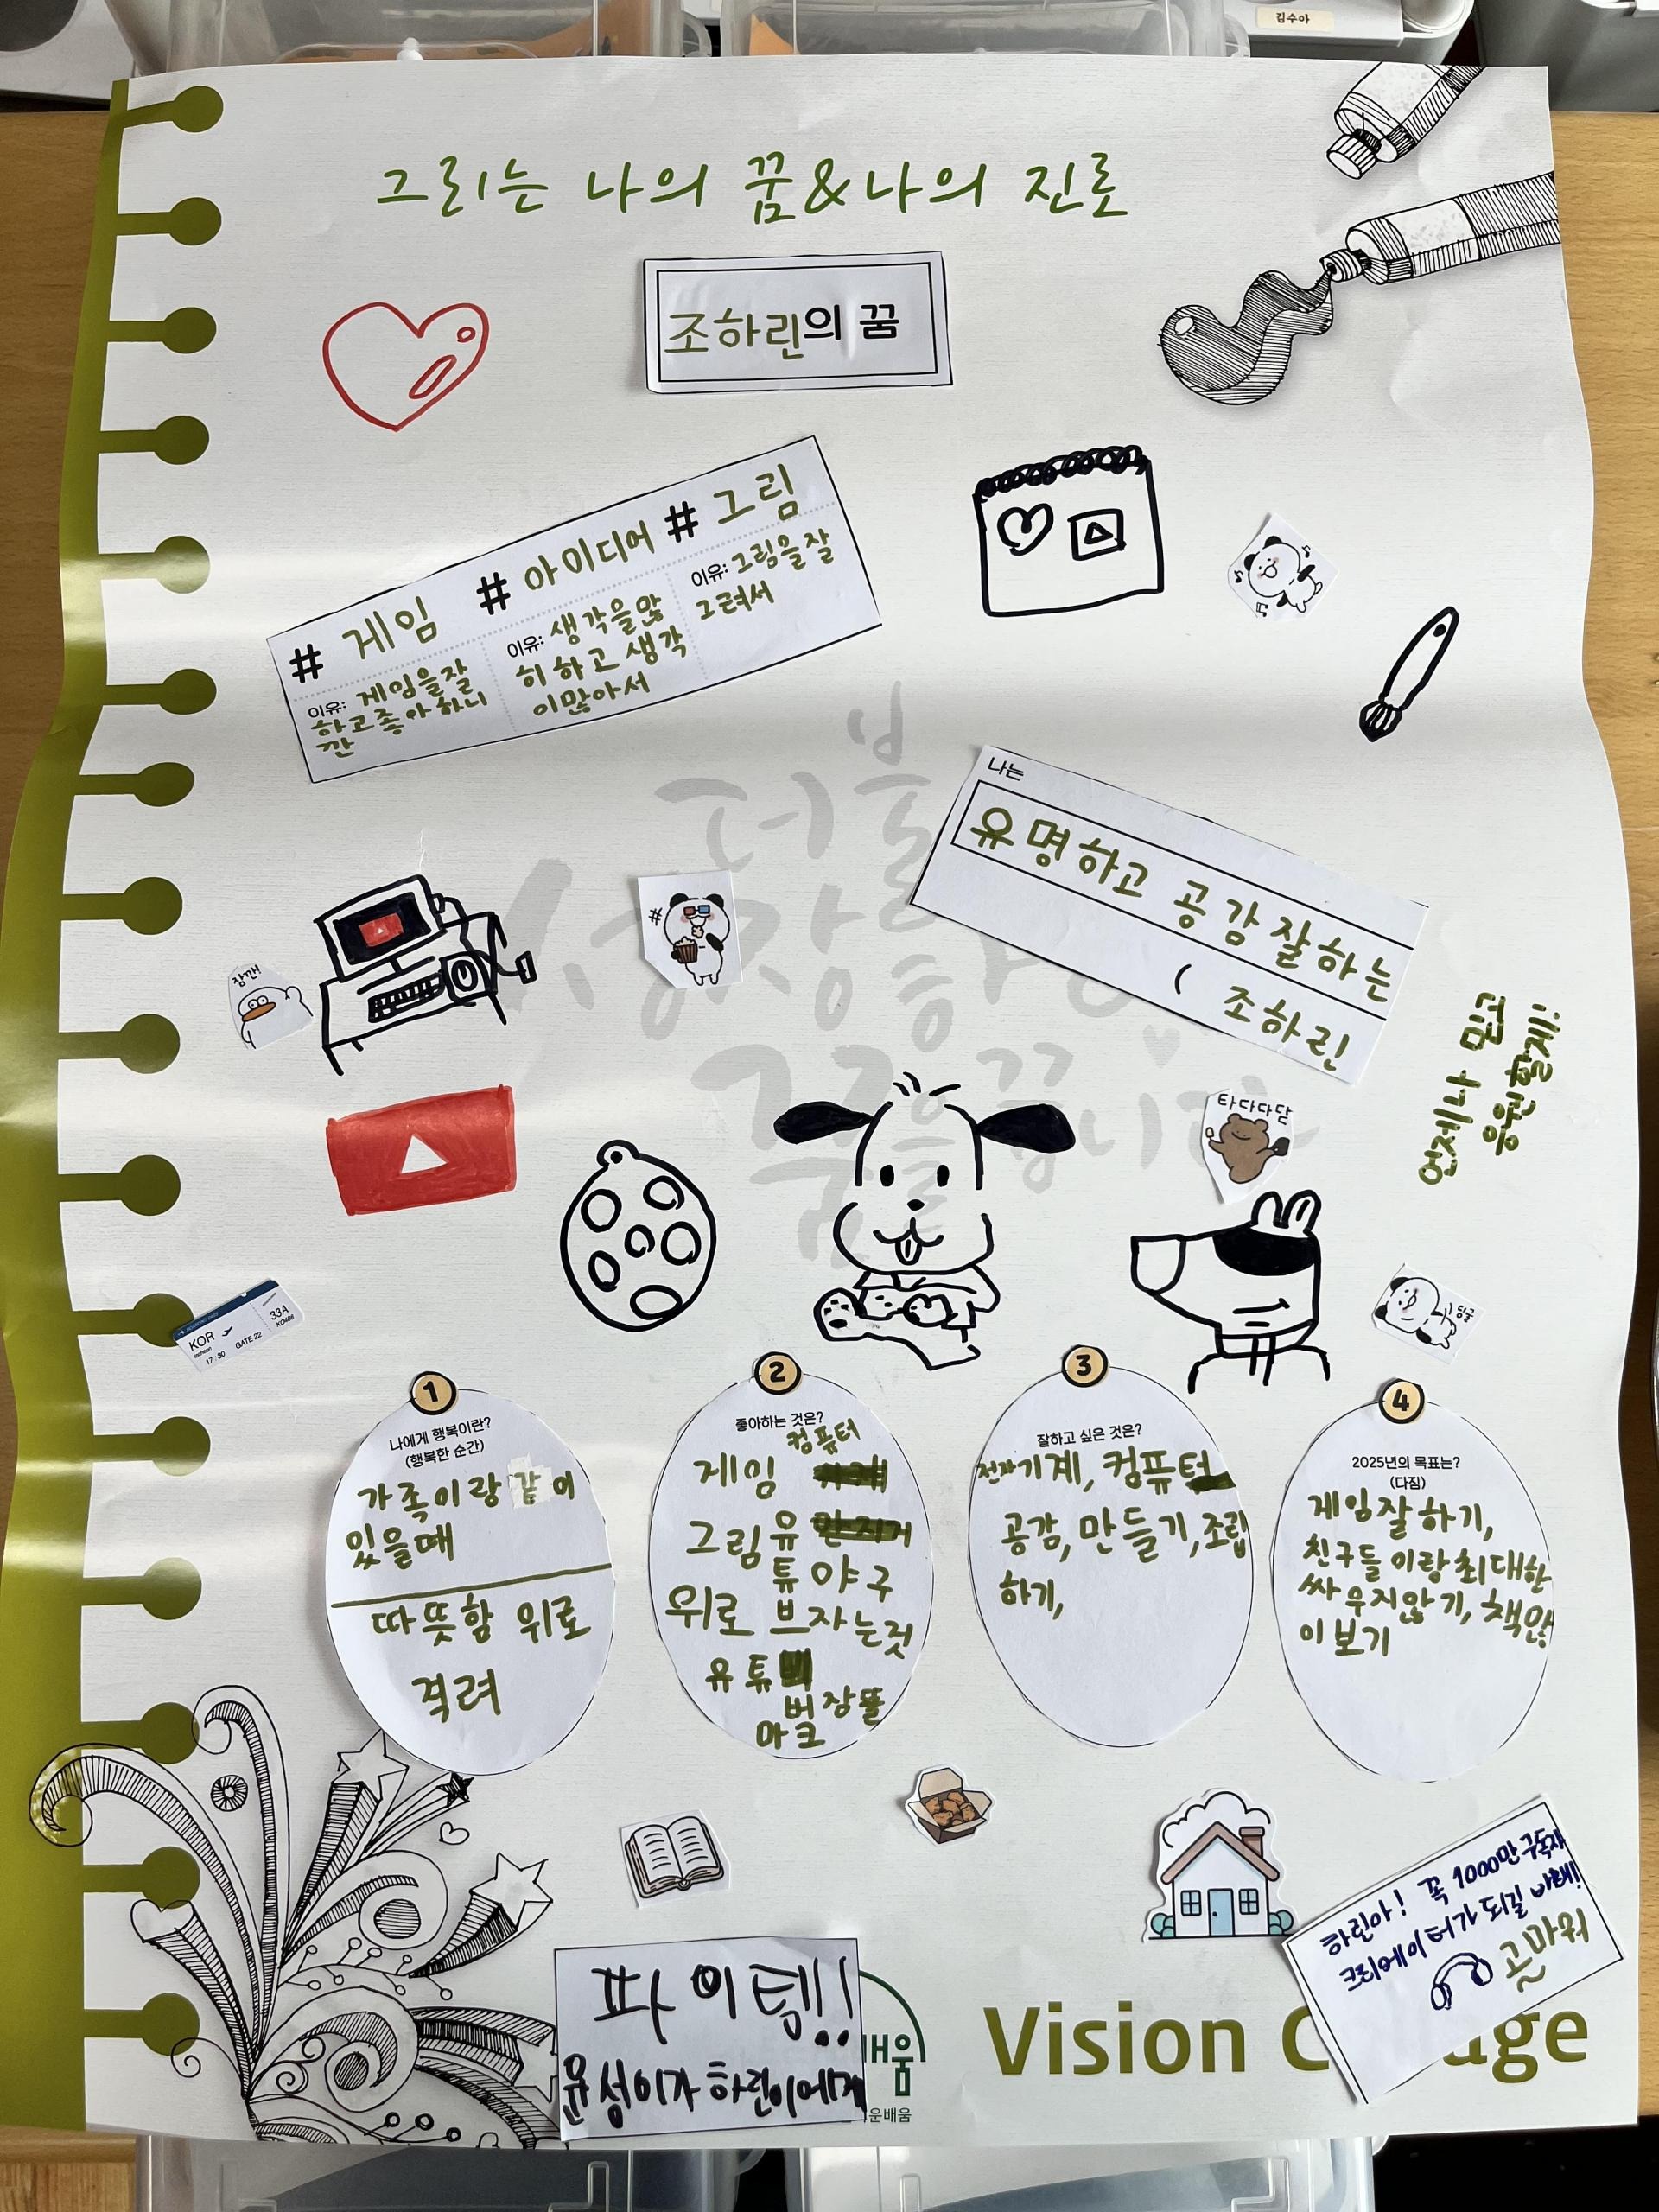 김수아
그리는 나의 꿈&나의 진로
조하린의 꿈
# 게임 # 아이디어 # 그림
이유: 게임을잘
하고좋아하니
깐
이유: 생각을많
히 하고 생각
이많아서
이유: 그림을잘
그려서
더불
성장하
나는
유명하고 공감잘하는
( 조하린
언제나 믿고
응원할게!
잠깐!
#
타다다닫
KOR
Incheon
33A
KO486
17:30 GATE 22
1
나에게 행복이란?
(행복한 순간)
가족이랑 같이
있을때
따뜻함 위로
격려
2
좋아하는 것은?
컴퓨터
게임
그림 유
튜 야구
위로 브 자는것
유튜
버 장뚤
마크
3
잘하고 싶은 것은?
전자기계, 컴퓨터
공감, 만들기, 조립
하기,
4
2025년의 목표는?
(다짐)
게임잘하기,
친구들이랑최대한
싸우지않기, 책많
이보기
하린아! 꼭 1000만구독자
크리에이터가 되길 바래!
고마워
파이팅!!
윤성이가 하린이에게
배움
운배움
Vision C age